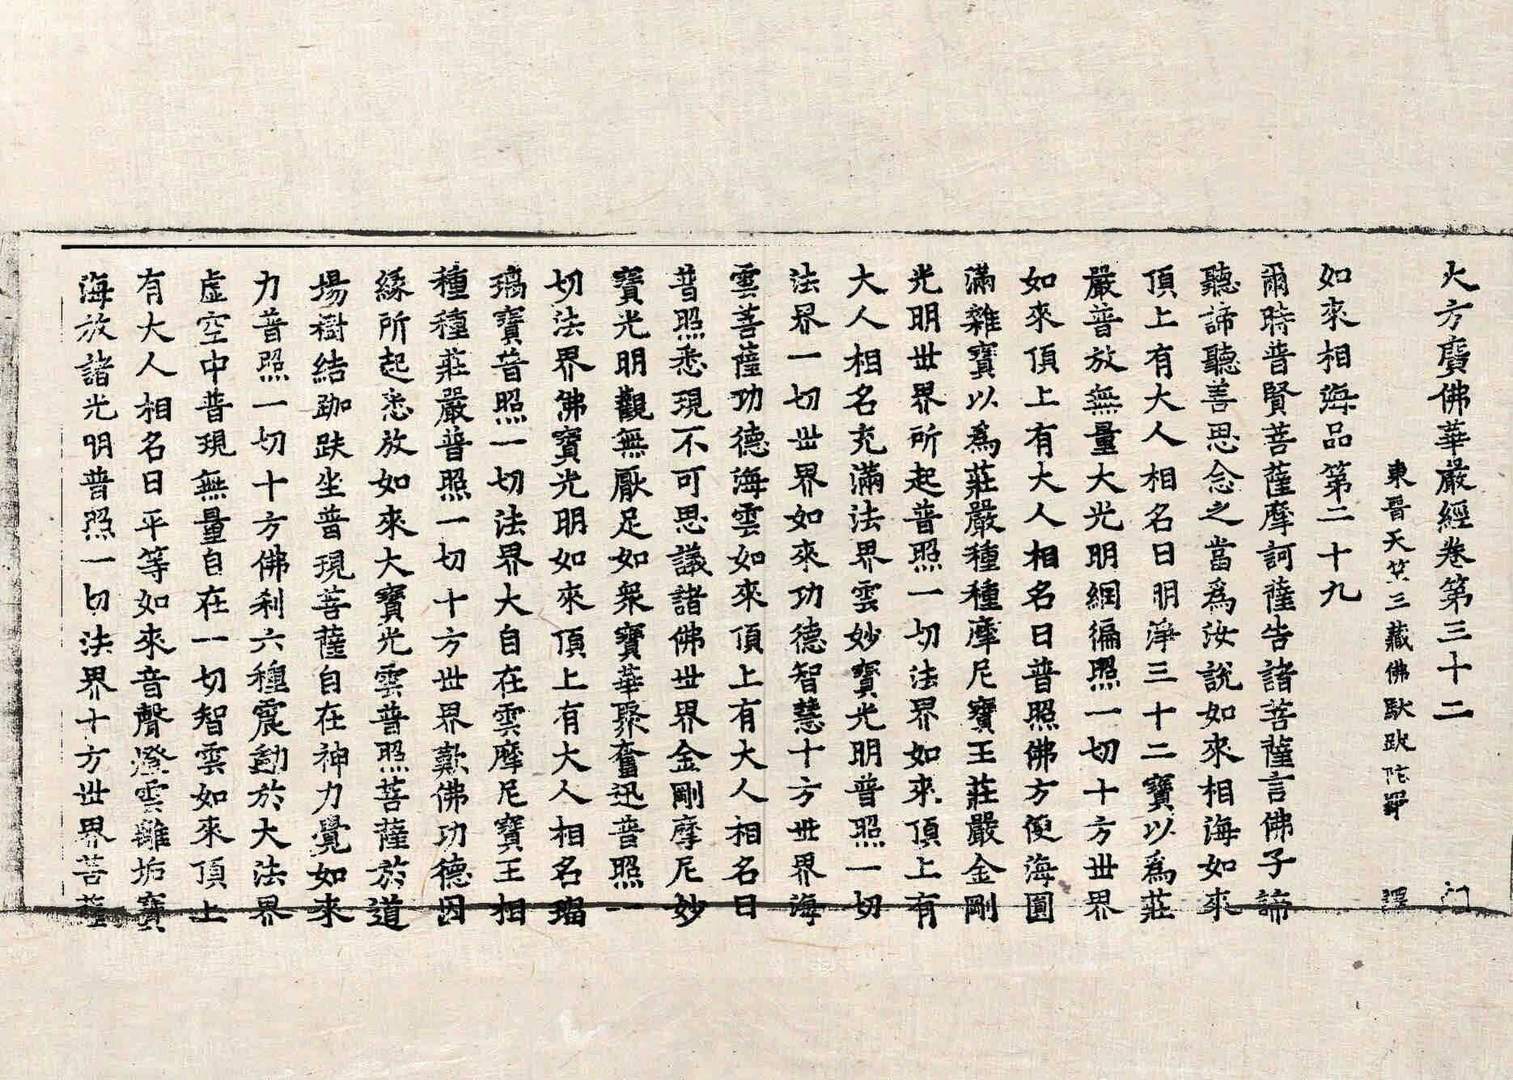 大方廣佛華嚴經卷第三十二
東晉天竺三藏佛馱跋陀羅 譯
如來相海品第二十九
爾時普賢菩薩摩訶薩告諸菩薩言佛子諦
聽諦聽善思念之當爲汝說如來相海如來
頂上有大人相名曰明淨三十二寶以爲莊
嚴普放無量大光明網徧照一切十方世界
如來頂上有大人相名曰普照佛方便海圓
滿雜寶以爲莊嚴種種摩尼寶王莊嚴金剛
光明世界所起普照一切法界如來頂上有
大人相名充滿法界雲妙寶光明普照一切
法界一切世界如來功德智慧十方世界海
雲菩薩功德海雲如來頂上有大人相名曰
普照悉現不可思議諸佛世界金剛摩尼妙
寶光明觀無厭足如衆寶華聚奮迅普照一
切法界佛寶光明如來頂上有大人相名瑠
璃寶普照一切法界大自在雲摩尼寶王相
種種莊嚴普照一切十方世界歎佛功德因
緣所起悉放如來大寶光雲普照菩薩於道
場樹結跏趺坐普現菩薩自在神力覺如來
力普照一切十方佛刹六種震動於大法界
虛空中普現無量自在一切智雲如來頂上
有大人相名曰平等如來音聲燈雲離垢寶
海放諸光明普照一切法界十方世界菩薩